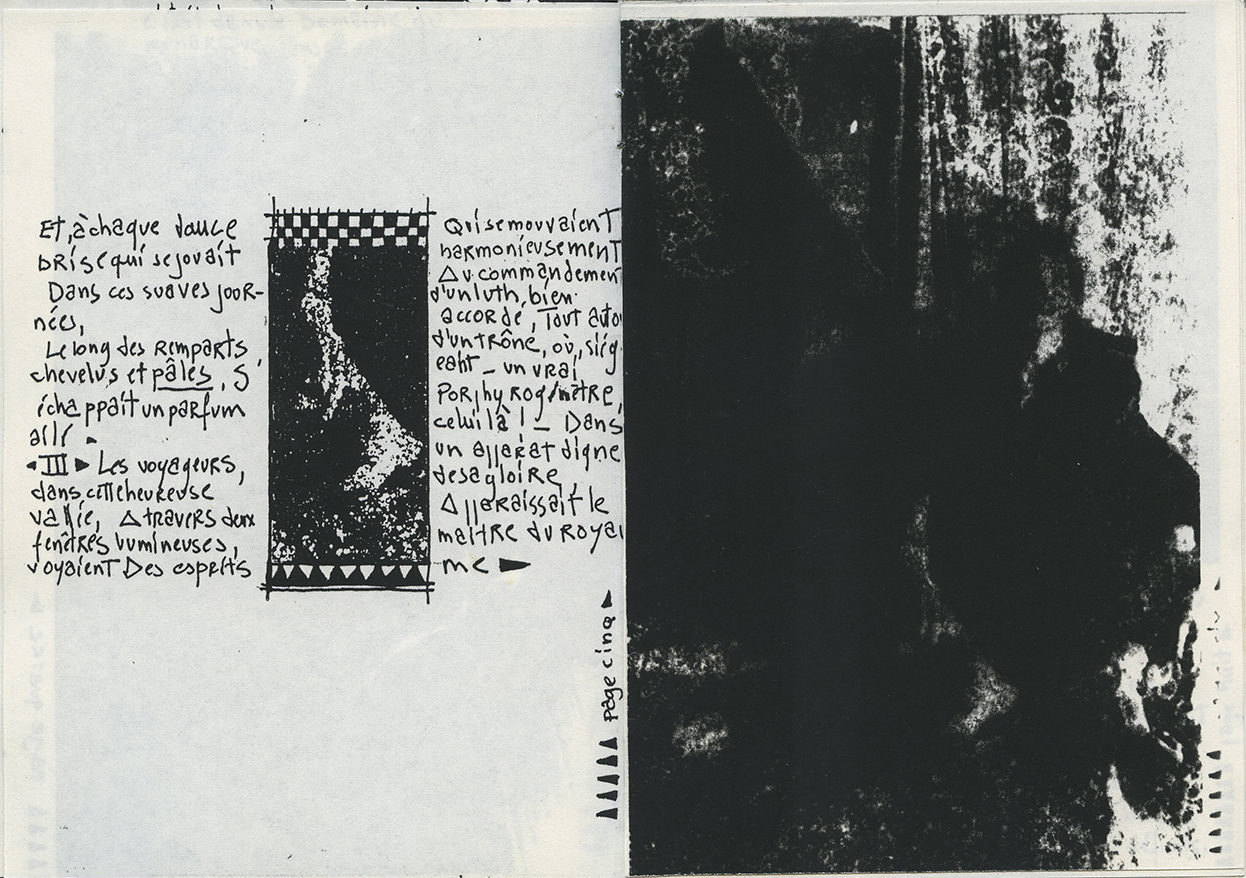 Et, à chaque douce
brise qui se jouait
Dans ces suaves jour-
nées,
Le long des Remparts
chevelus et pâles, s'
échappait un parfum
ailé
III Les voyageurs,
dans cette heureuse
vallée, A travers deux
fenêtres lumineuses,
voyaient Des esprits
Qui se mouvaient
harmonieusement
Au commandemen
d'un luth bien
accordé, Tout auto
d'un trône, où, siég
eant _ un vrai
Porphyrogénète,
celui là ! _ Dans
un apparat digne
de sa gloire,
Apparaissait le
maître du Royau
me
page cinq